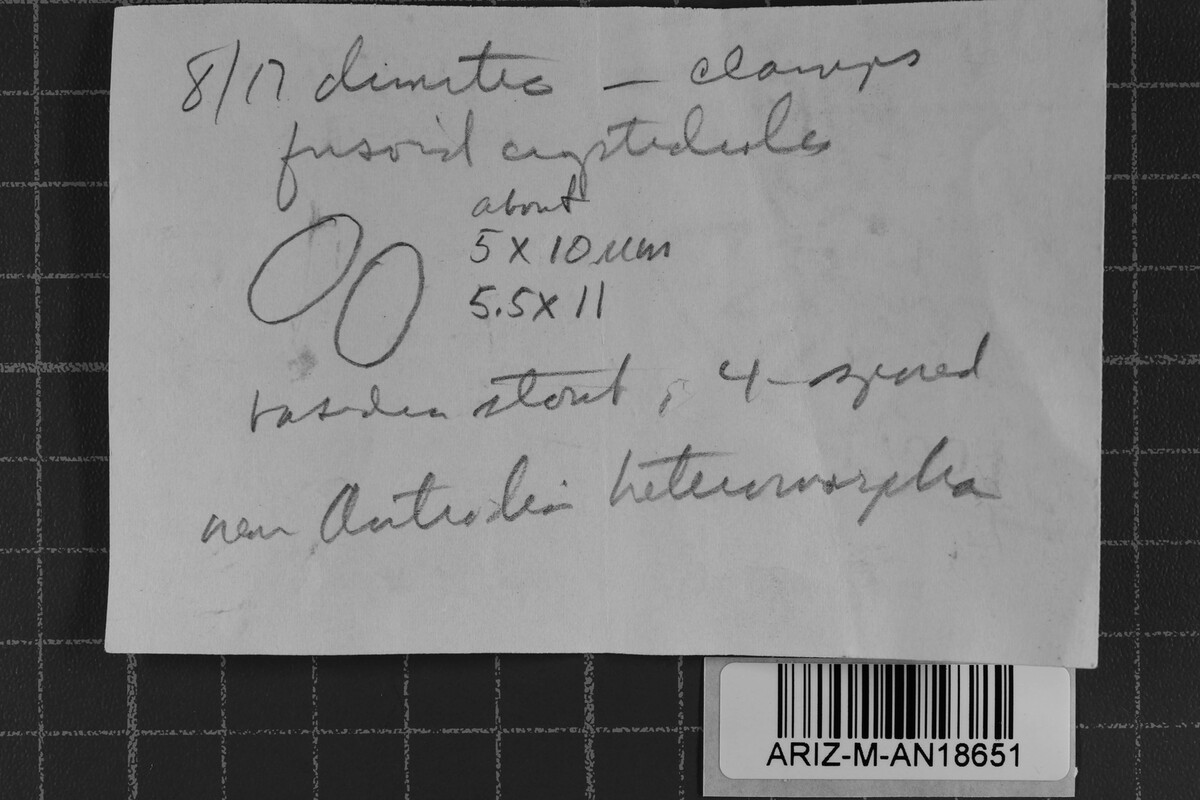 8/17 dimitic – clamps
fusoid cystidioles
about
5 x 10 µm
5.5 x 11
basidia stout, 4-spored
near Antrodia heteromorpha
ARIZ-M-AN18651